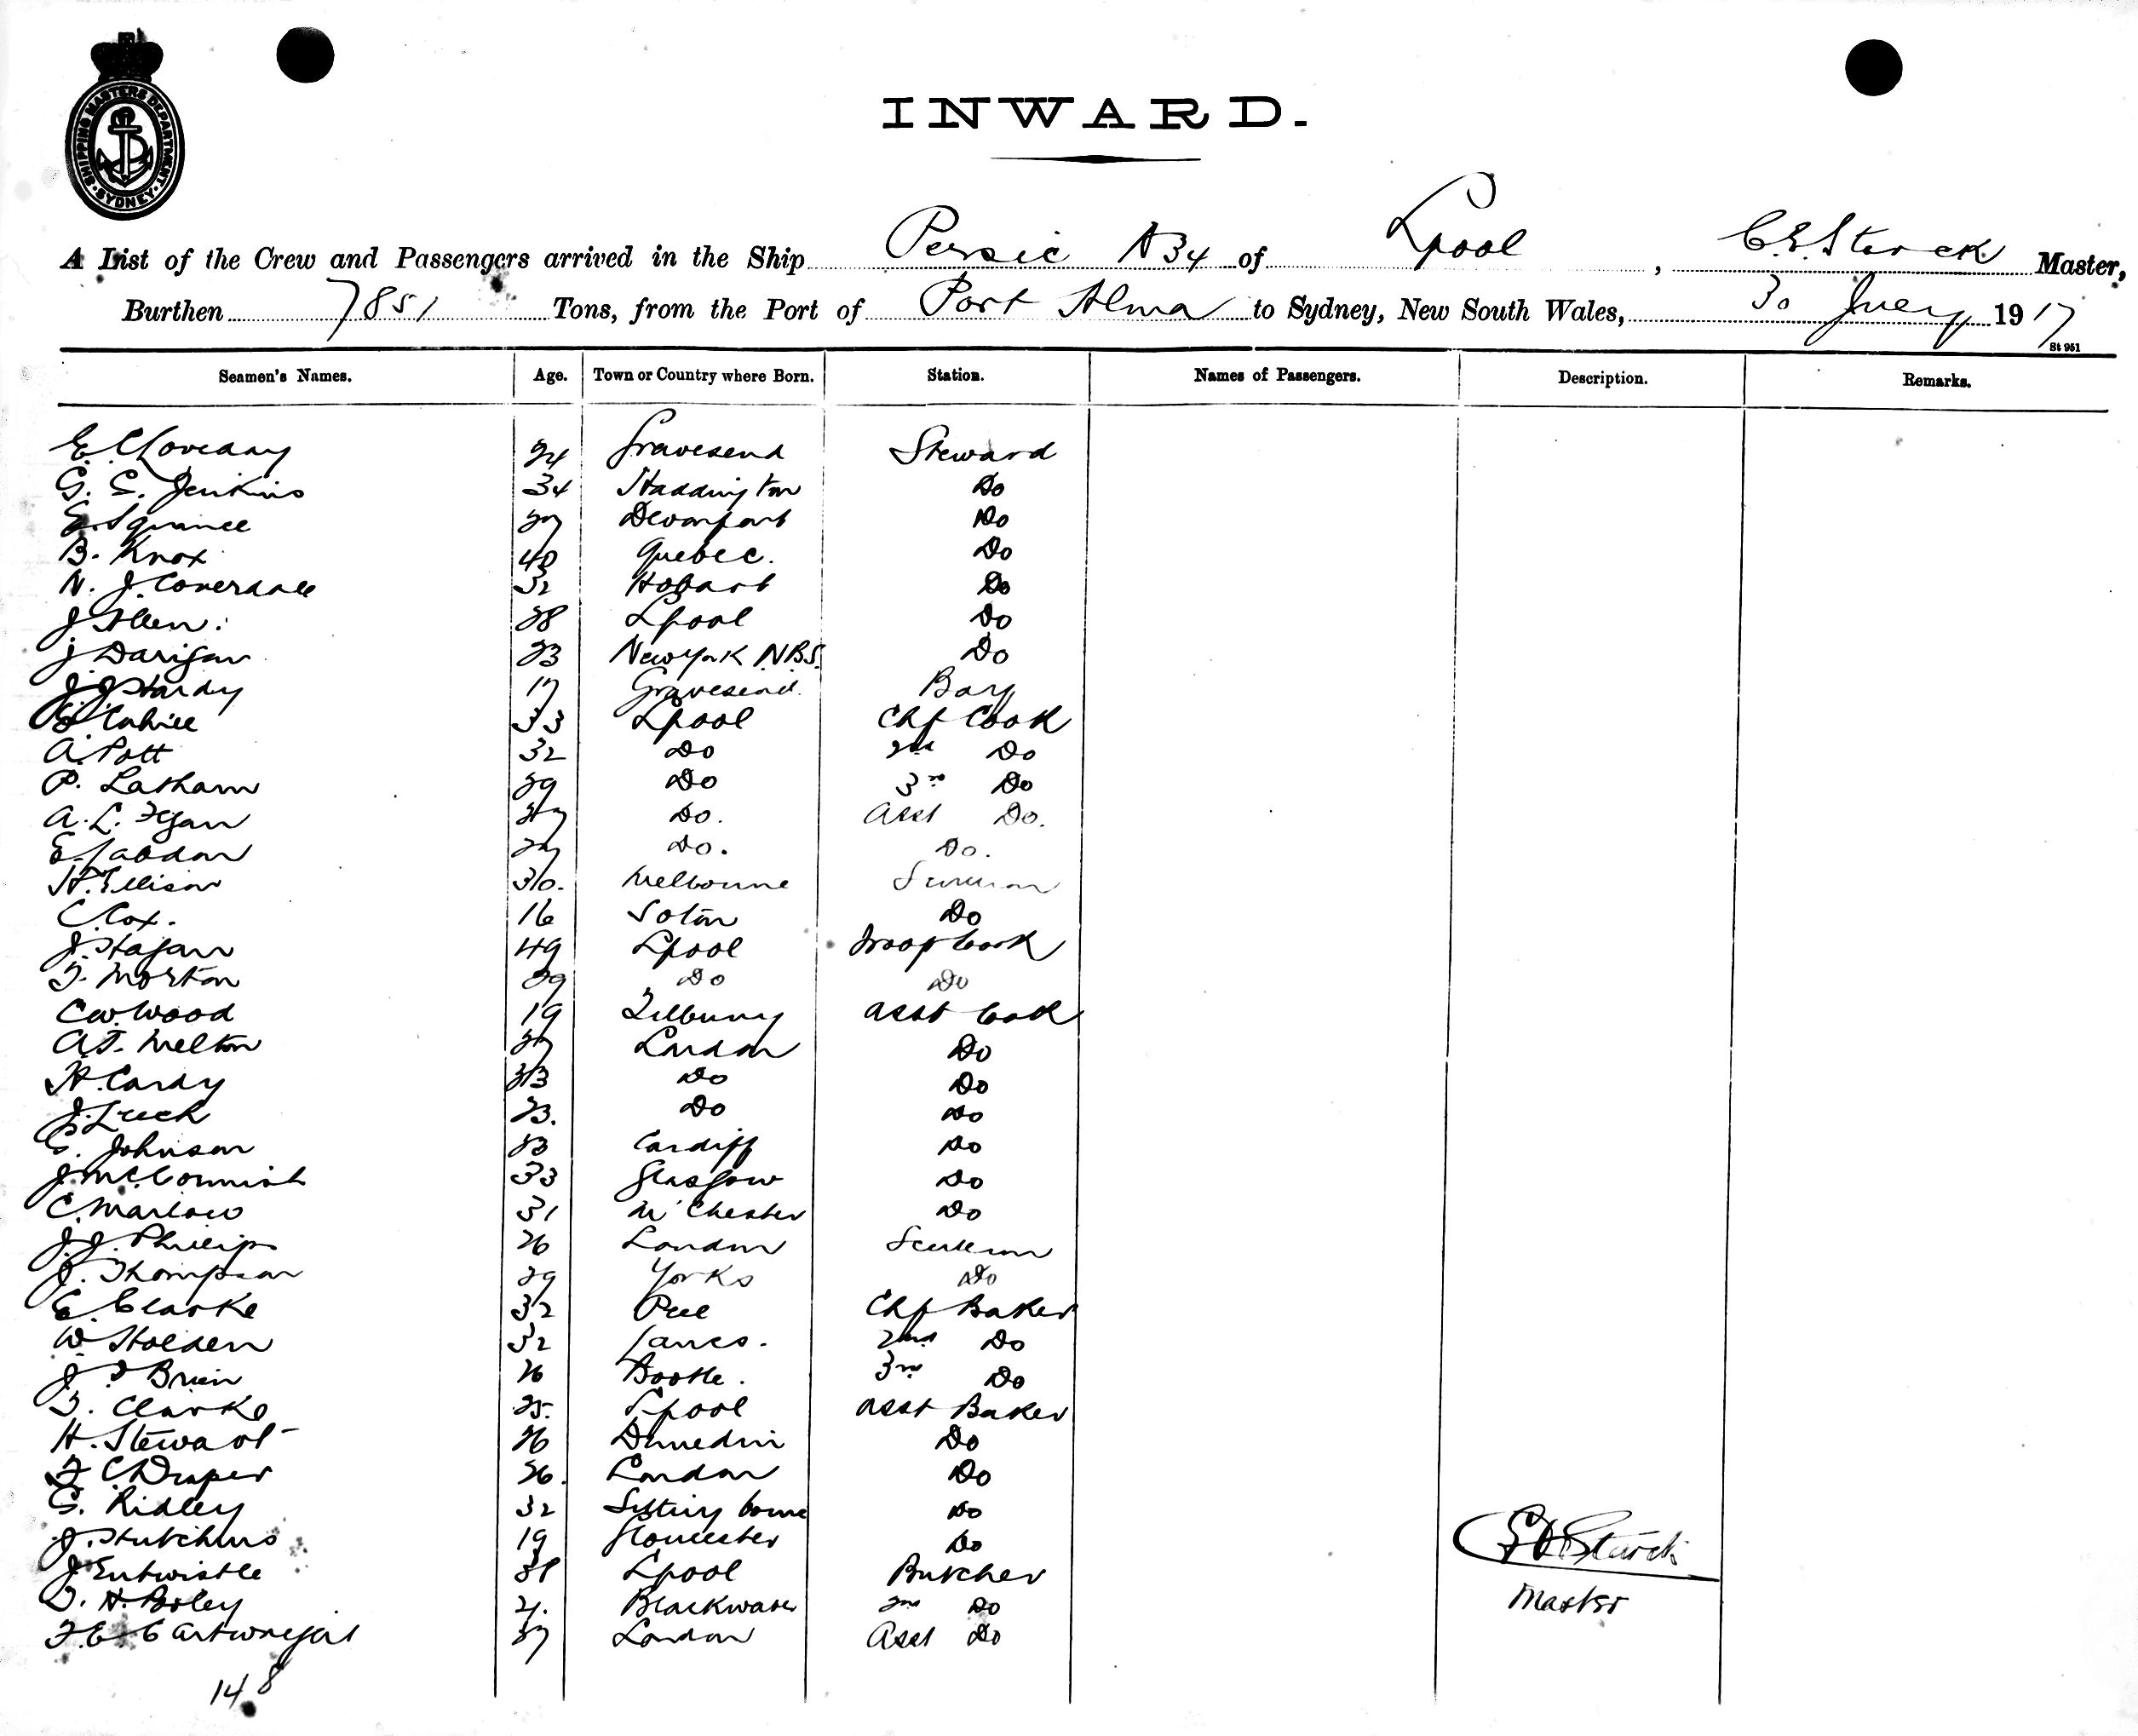 SHIPPING MASTERS DEPARTMENT SYDNEY
INWARD.
A List of the Crew and Passengers arrived in the Ship Persic A34 of Lpool, C.E. Starck Master,
Burthen 7851 Tons, from the Port of Port Alma to Sydney, New South Wales, 30 July 1917
St 951
Seamen's Names. Age. Town or Country where Born. Station. Names of Passengers. Description. Remarks.
E. C. Loveday 24 Gravesend Steward
G. E. Jenkins 34 Haddington Do
E. Squance 27 Devonport Do
B. Knox 40 Quebec. Do
N. J. Coverdale 32 Hobart Do
J Allen. 28 Lpool Do
J Darigan 23 New York N.B.S. Do
J. J. Hardy 17 Gravesend Boy
Cahill 33 Lpool Chf Cook
A. Pott 32 Do 2nd Do
P. Latham 29 Do 3rd Do
A. L. Fegan 27 Do. Asst Do.
E. 27 Do. Do.
H. Ellison 30. Melbourne Scullion
C. Cox. 16 Soton Do
J. Hagan 49 Lpool Troop Cook
T. Morton 29 Do Do
C W Wood 19 Tilbury Asst Cook
A. T. Melton 27 London Do
H. Cardy 33 Do Do
J. Leech 23. Do Do
C. Johnson 23 Cardiff Do
J. McCormick 33 Glasgow Do
C. Marlow 31 M'Chester Do
J. J. Phillips 26 London Scullion
J. Thompson 29 Yorks Do
E. Clarke 32 Peel Chf Baker
W. Holden 32 Lancs. 2nd Do
J O Brien 26 Bootle. 3rd Do
T. Clarke 25. Lpool Asst Baker
H. Stewart 26 Dunedin Do
F. C Draper 26. London Do
G. Ridley 32 Sitting bourne Do
J. Hutchins 19 Gloucester Do
J Entwistle 38 Lpool Butcher
T. H. Boley Blackwater 2nd Do
F. E. Cartwright 27 London Asst Do
C E Starck
Master
148